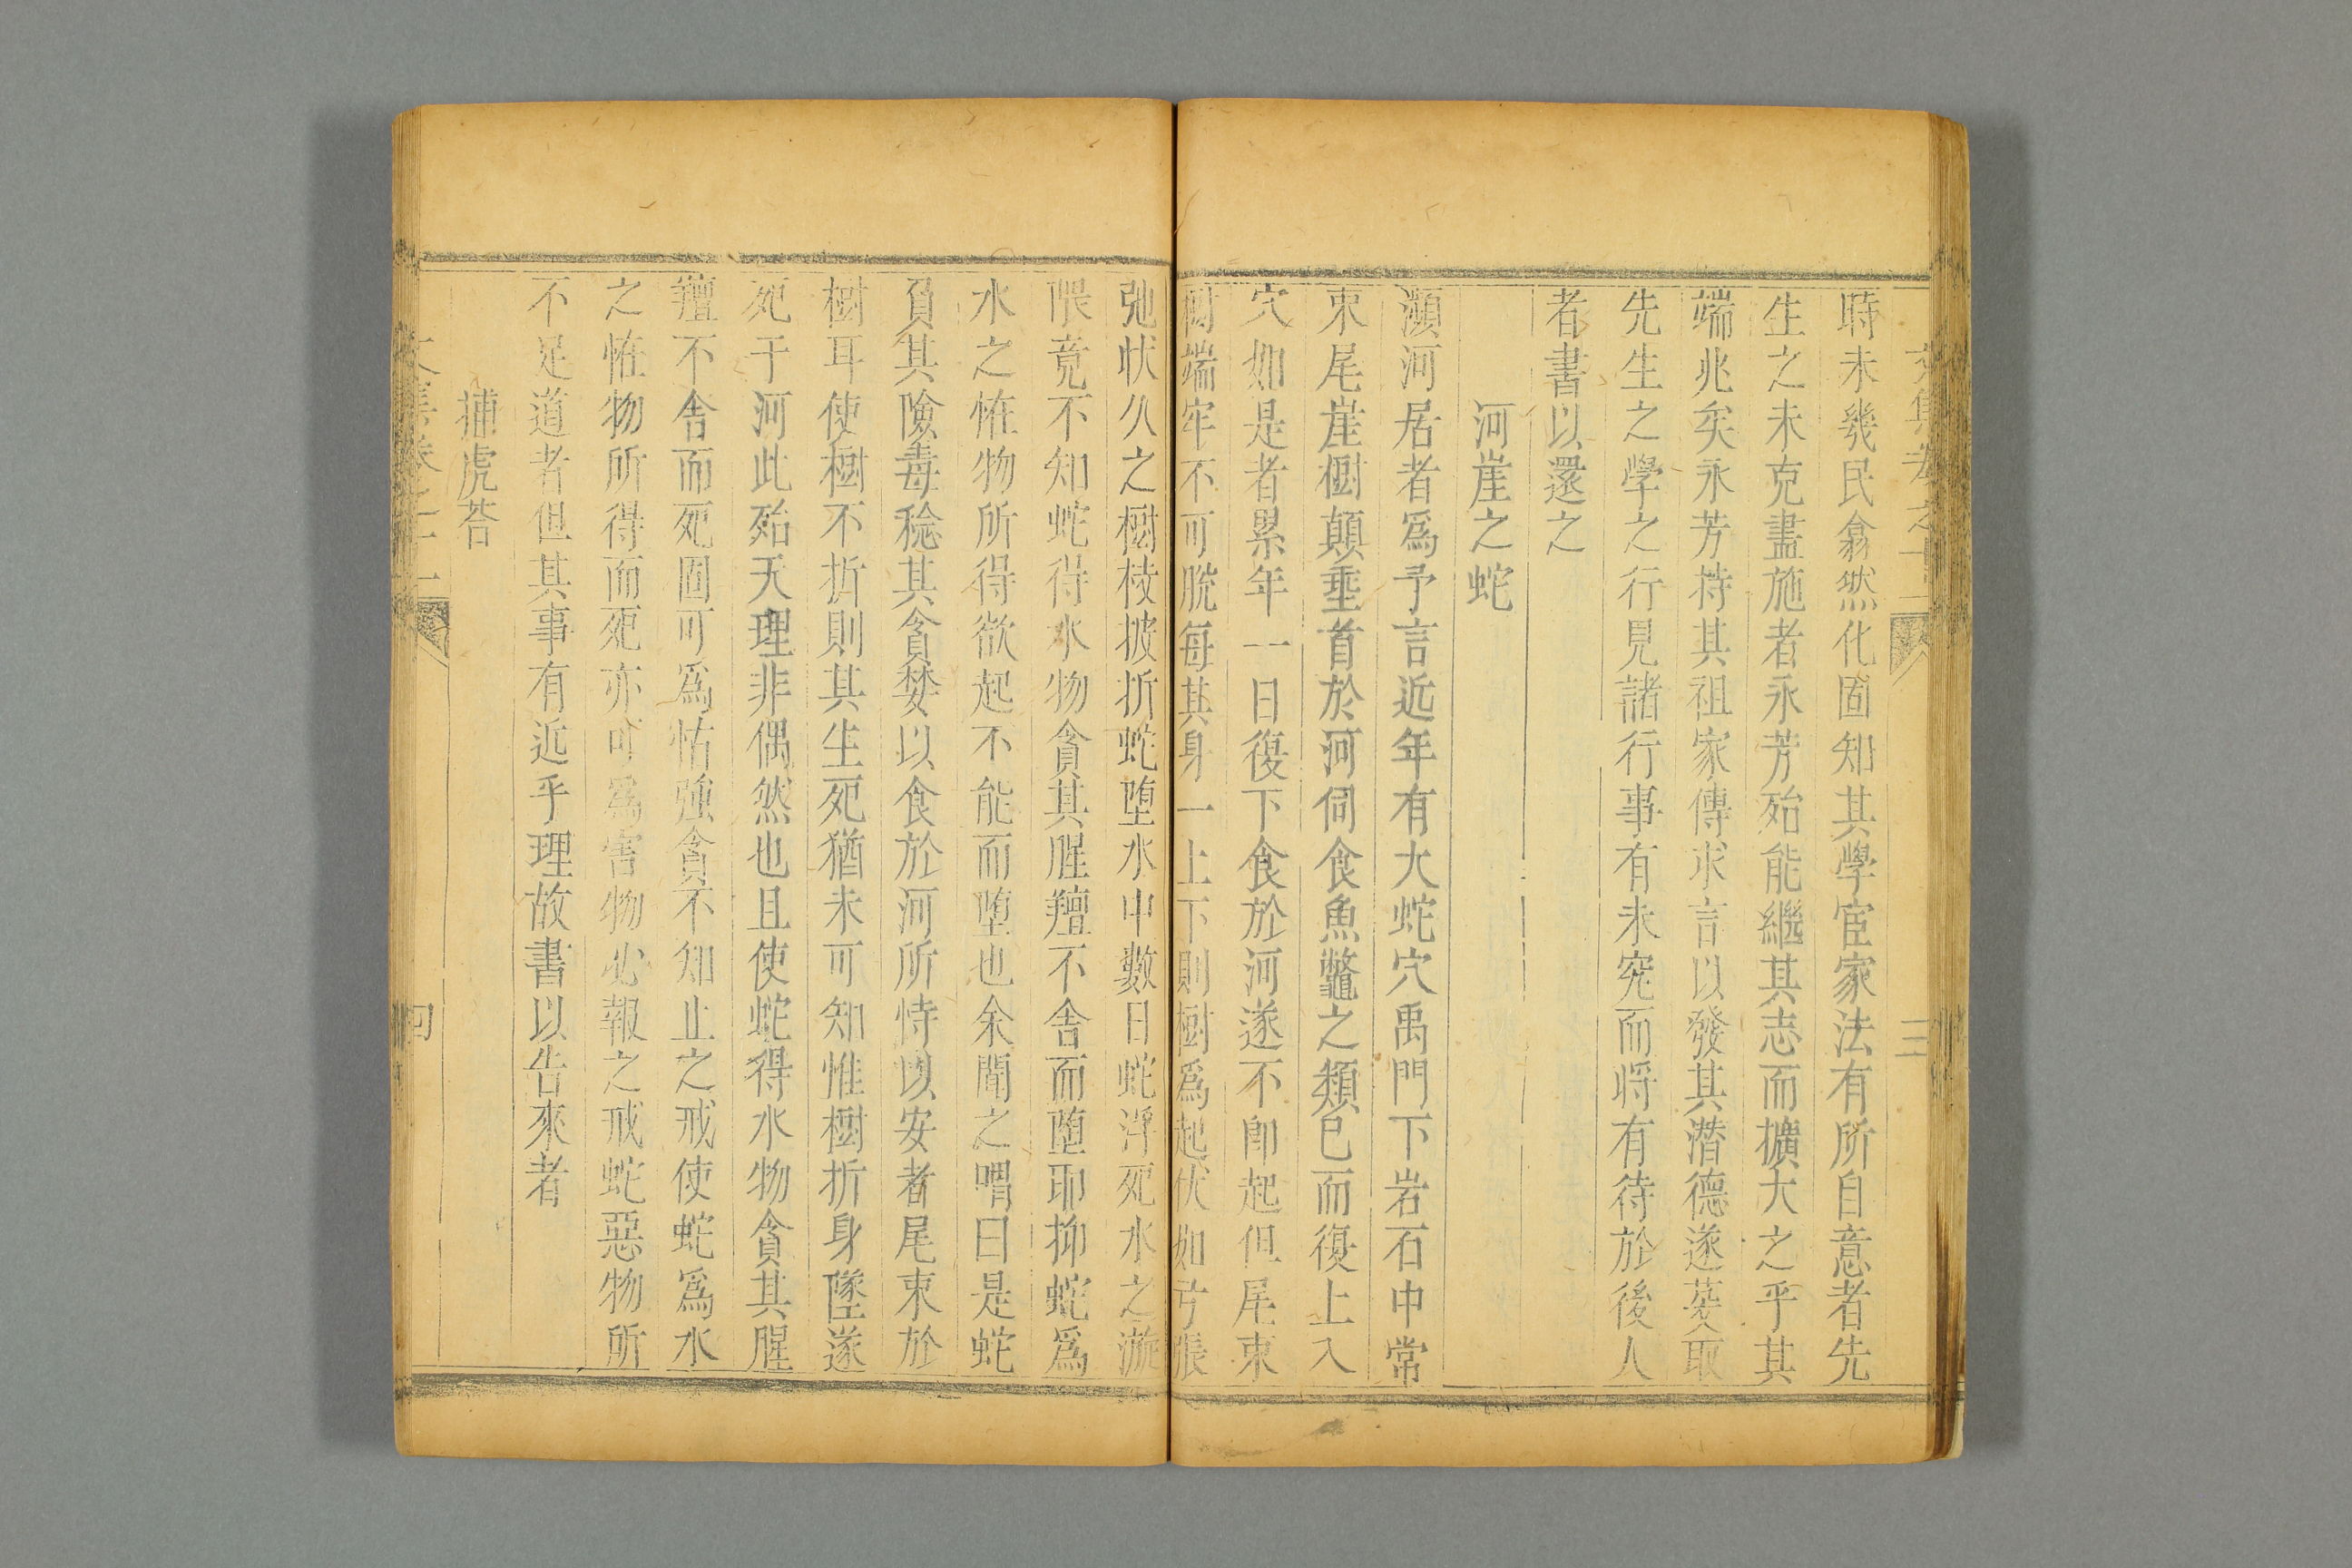 文集卷之十二
三
時未幾民翕然化固知其學宦家法有所自意者先
生之未克盡施者永芳殆能繼其志而擴大之乎其
端兆矣永芳持其祖家傳求言以發其潛德遂蕟取
先生之學之行見諸行事有未究而將有待於後人
者書以還之
河崖之蛇
瀕河居者爲予言近年有大蛇穴禹門下岩石中常
束尾崖樹顛垂首於河伺食魚鼈之類巳而復上入
穴如是者累年一日復下食於河遂不卽起但尾束
樹端牢不可脫每其身一上下則樹爲起伏如弓張
弛狀久之樹枝披折蛇墮水中數日蛇浮死水之漩
隈竟不知蛇得水物貪其腥羶不舍而墮耶抑蛇爲
水之恠物所得欲起不能而墮也余聞之喟曰是蛇
負其險毒稔其貪婪以食於河所恃以安者尾束於
樹耳使樹不折則其生死猶未可知惟樹折身墜遂
死于河此殆天理非偶然也且使蛇得水物貪其腥
羶不舍而死固可爲怙強貪不知止之戒使蛇爲水
之恠物所得而死亦可爲害物必報之戒蛇惡物所
不足道者但其事有近乎理故書以告來者
捕虎荅
文集卷之十二
四